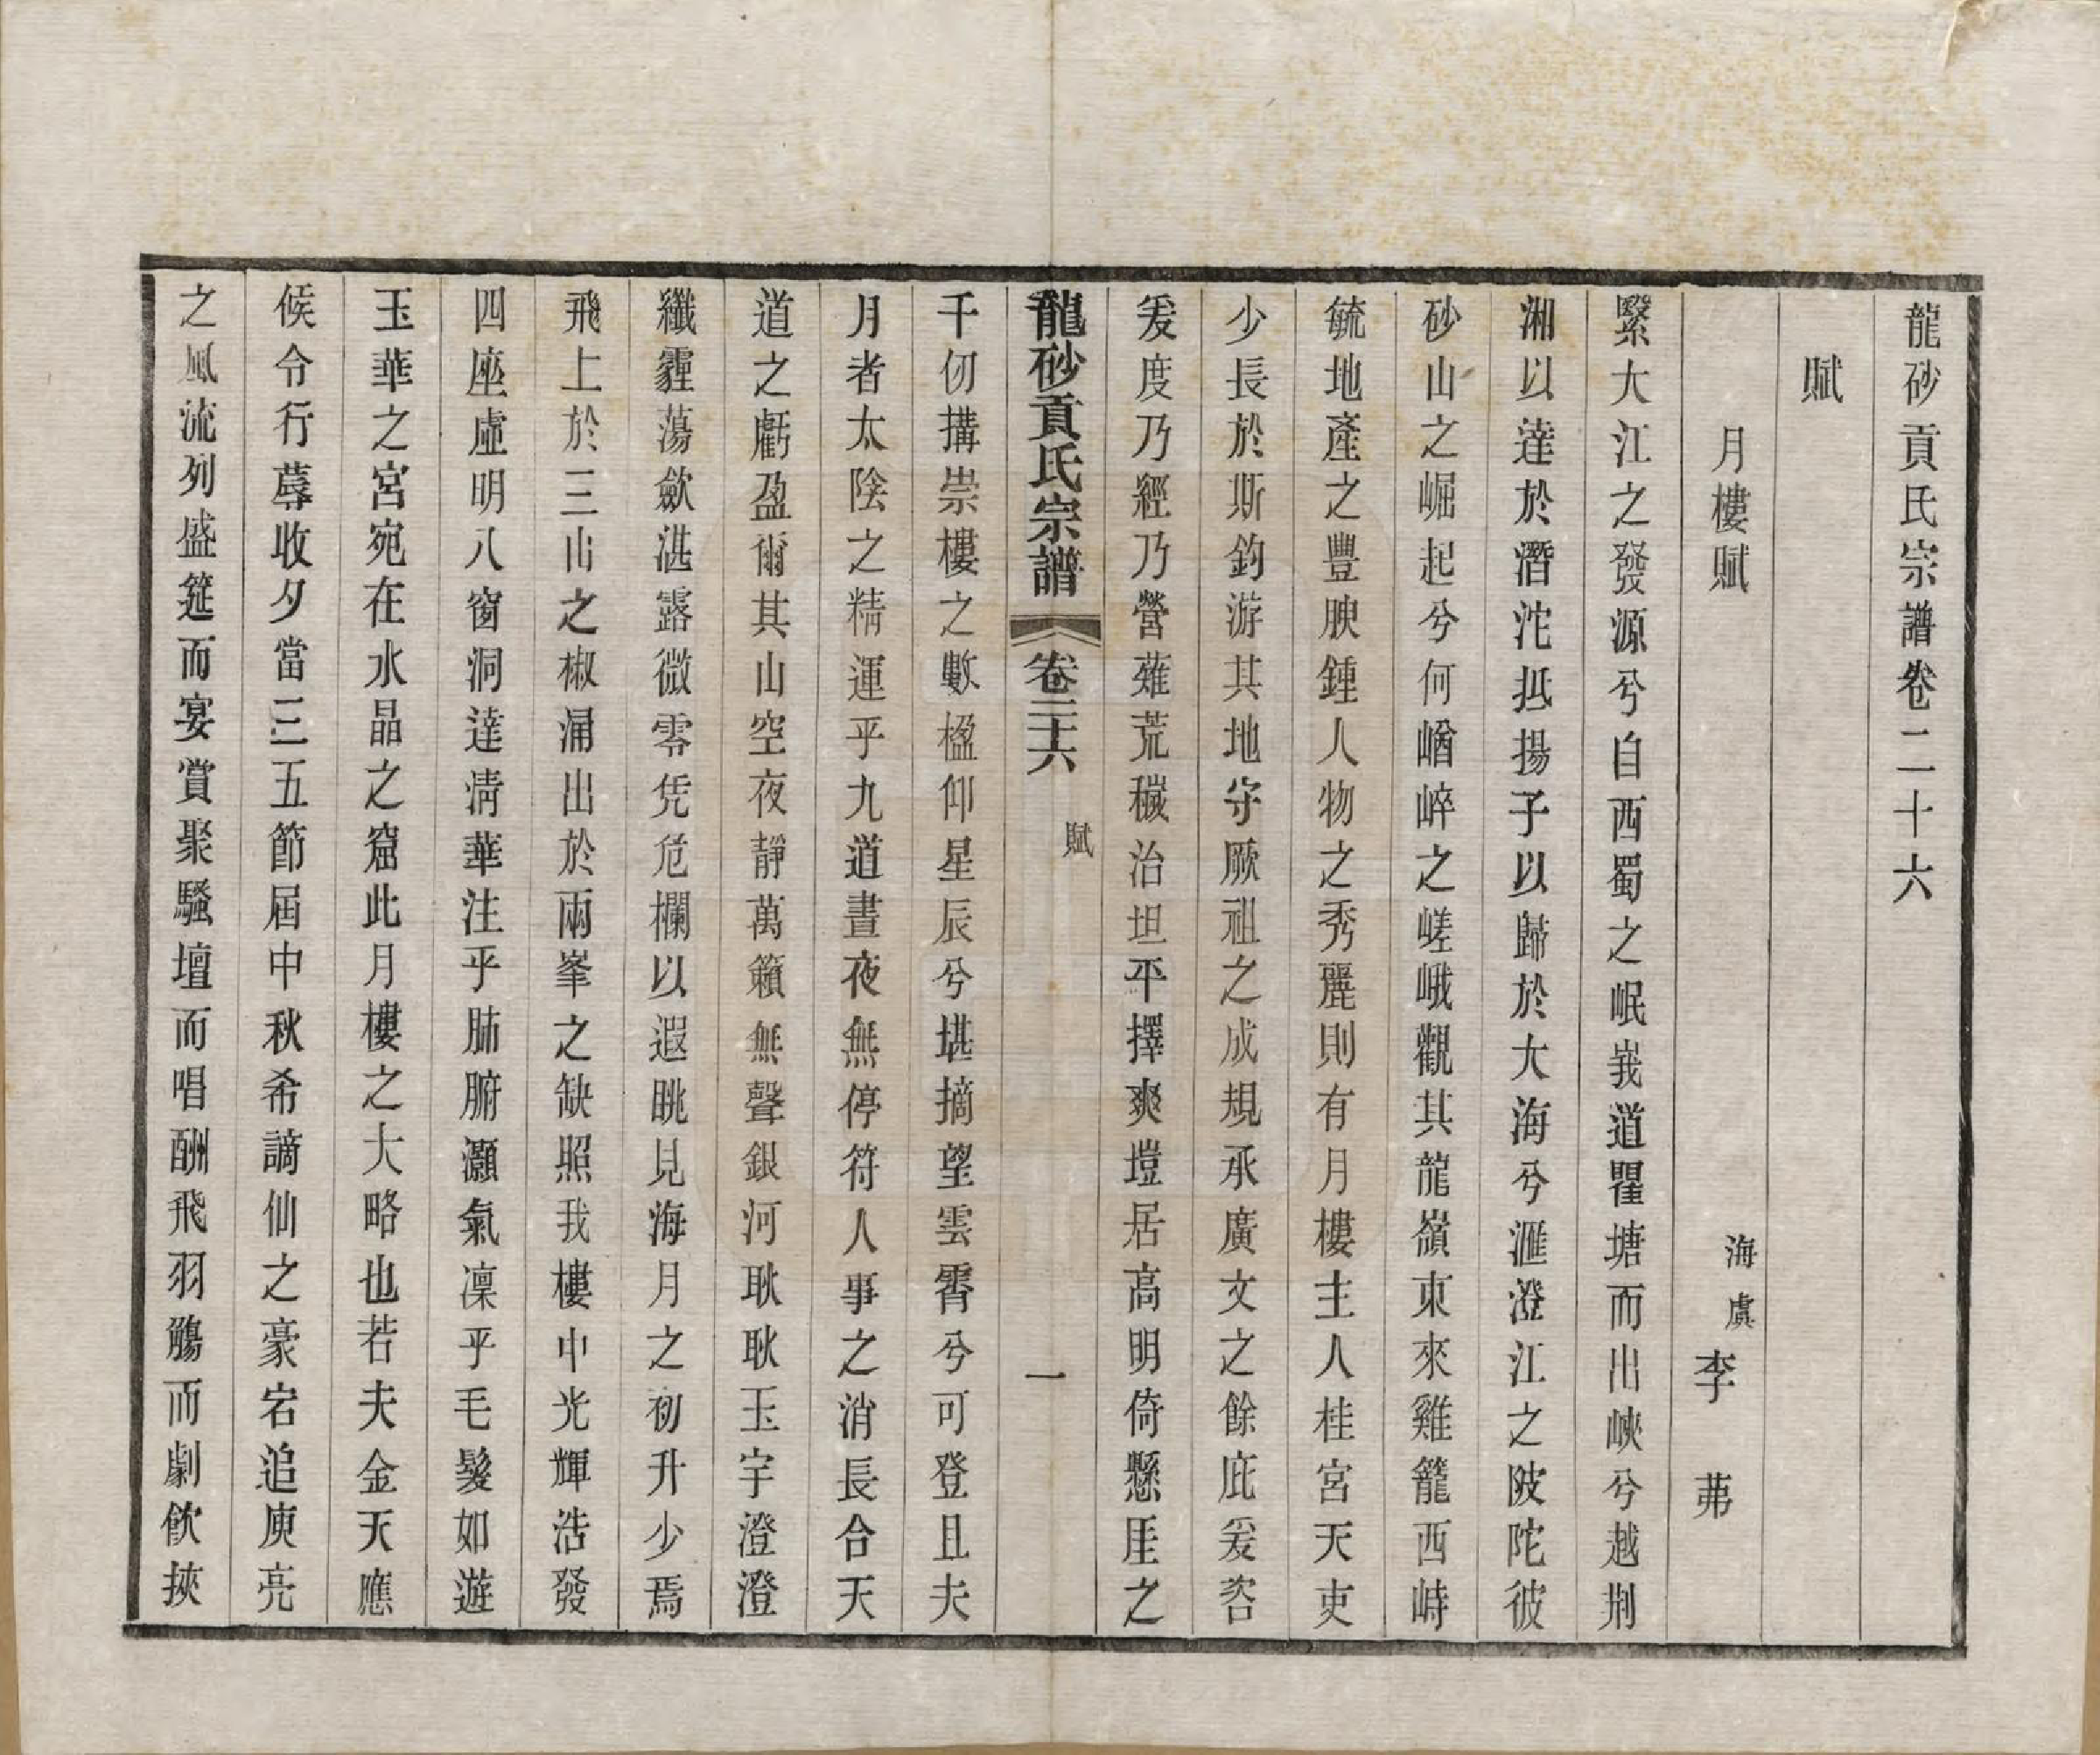 龍砂貢氏宗譜卷二十六
賦
月樓賦
海虞李 茀
繄大江之發源兮自西蜀之岷峩道瞿塘而出峽兮越荆
湘以達於潛沱抵揚子以歸於大海兮滙澄江之陂陀彼
砂山之崛起兮何崷崪之嵯峨觀其龍嶺東來雞籠西峙
毓地產之豐腴鍾人物之秀麗則有月樓主人桂宮天吏
少長於斯釣游其地守厥祖之成規承廣文之餘庇爰咨
爰度乃經乃營薙荒穢治坦平擇爽塏居高明倚懸厓之
龍砂貢氏宗譜 卷二十六 賦 一
千仞搆崇樓之數楹仰星辰兮堪摘望雲霄兮可登且夫
月者太陰之精運乎九道晝夜無停符人事之消長合天
道之虧盈爾其山空夜靜萬籟無聲銀河耿耿玉宇澄澄
纖霾蕩歛湛露微零凭危欄以遐眺見海月之初升少焉
飛上於三山之椒涌出於兩峯之缺照我樓中光輝浩發
四座虛明八窗洞達清華注乎肺腑灝氣凜乎毛髮如遊
玉華之宮宛在水晶之窟此月樓之大略也若夫金天應
候令行蓐收夕當三五節屆中秋希謫仙之豪宕追庾亮
之風流列盛筵而宴賞聚騷壇而唱酬飛羽觴而劇飲挾